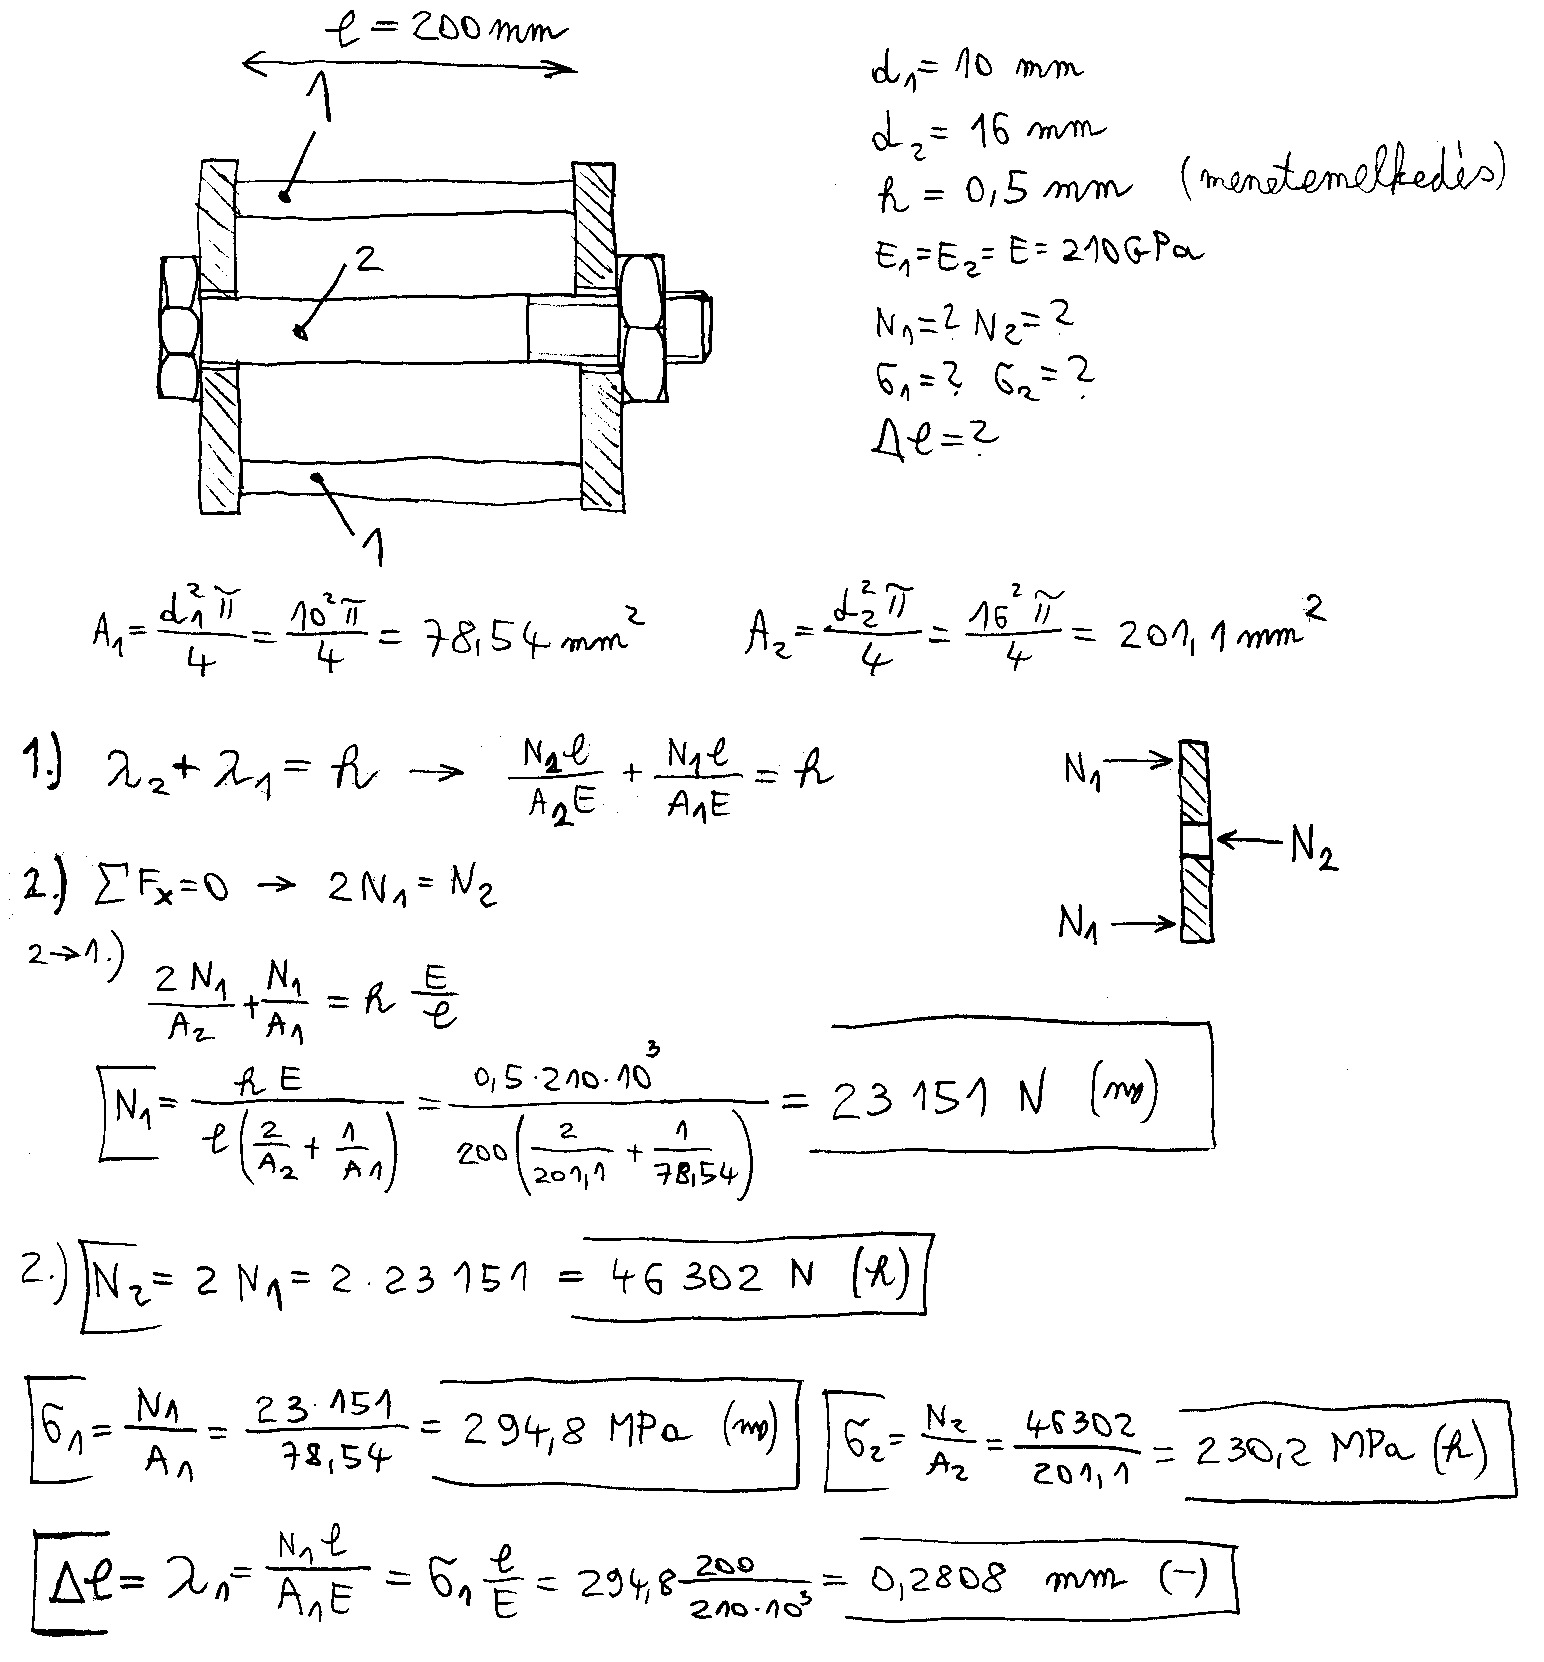 ℓ = 200 mm
1
2
1
d₁ = 10 mm
d₂ = 16 mm
h = 0,5 mm (menetemelkedés)
E₁ = E₂ = E = 210 GPa
N₁ = ? N₂ = ?
σ₁ = ? σ₂ = ?
Δℓ = ?
A₁ = d₁²π/4 = 10²π/4 = 78,54 mm² A₂ = d₂²π/4 = 16²π/4 = 201,1 mm²
1.) λ₂ + λ₁ = h → N₂ℓ/A₂E + N₁ℓ/A₁E = h
N₁
N₂
N₁
2.) ΣFx = 0 → 2N₁ = N₂
2→1.)
2N₁/A₂ + N₁/A₁ = h E/ℓ
N₁ = hE/ℓ(2/A₂ + 1/A₁) = 0,5·210·10³/200(2/201,1 + 1/78,54) = 23 151 N (ny)
2.) N₂ = 2N₁ = 2·23 151 = 46 302 N (h)
σ₁ = N₁/A₁ = 23·151/78,54 = 294,8 MPa (ny) σ₂ = N₂/A₂ = 46302/201,1 = 230,2 MPa (h)
Δℓ = λ₁ = N₁ℓ/A₁E = σ₁ ℓ/E = 294,8 200/210·10³ = 0,2808 mm (-)